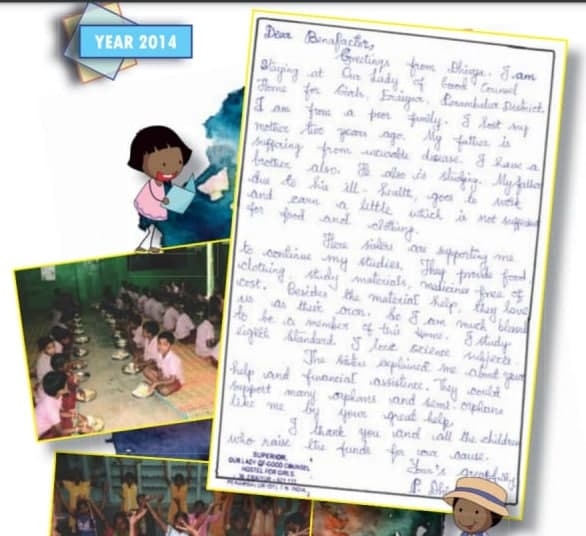 YEAR 2014
Dear Benefactors,
Greetings from Dhivya. I am
staying at Our Lady of Good Counsel
Home for Girls, Eraiyur, Perambalur District.
I am from a poor family. I lost my
mother two years ago. My father is
suffering from incurable disease. I have a
brother also. He also is studying. My father
due to his ill-health, goes to work
and earn a little which is not sufficient
for food and clothing.
Here Sisters are supporting me
to continue my studies. They provide food
clothing, study materials, medicines free of
cost. Besides the material help, they love
us as their own. So I am much blessed
to be a member of this Home. I study
eighth Standard. I love science subject.
The Sisters explained me about your
help and financial assistance. They could
support many orphans and semi-orphans
like me by your great help.
I thank you and all the children
who raise the funds for our cause.
Your's gratefully
P.
SUPERIOR,
OUR LADY OF GOOD COUNSEL
HOSTEL FOR GIRLS
ERAIYUR - 621